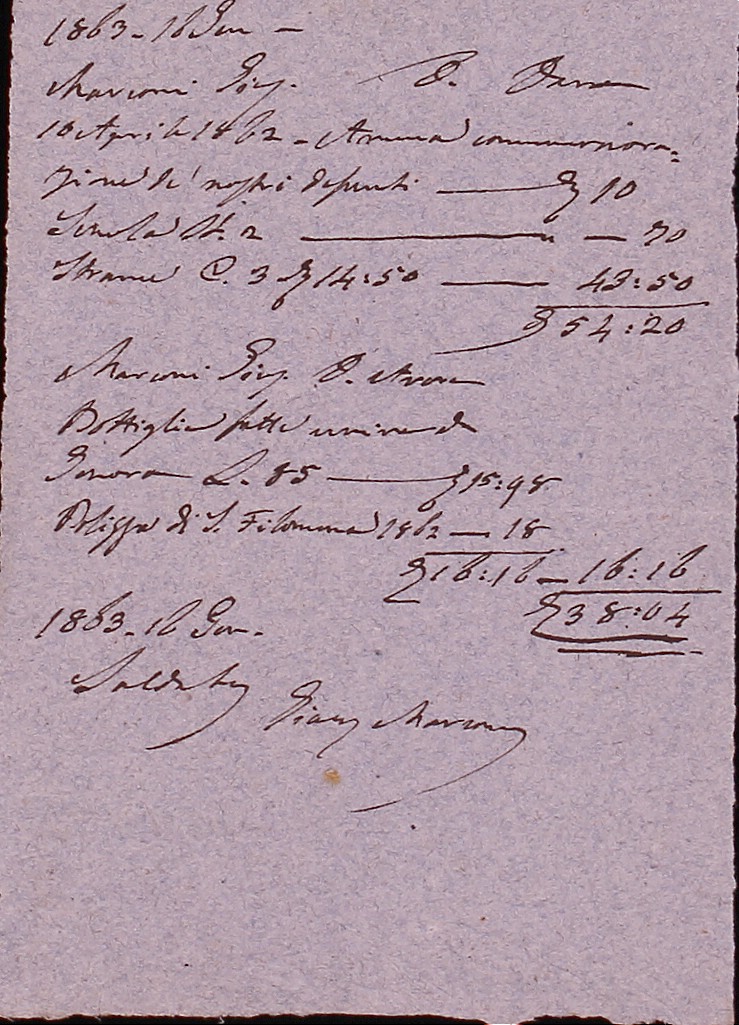 1863 - 16 Gen -
Marconi Giac. D. Dare
10 Aprile 1862 - Annua commemora=
zione de' nostri defunti — £ 10
N. 2 — " — 70
Strame C. 3 £ 14:50 — 43:50
£ 54:20
Marconi Giac. D. Avere
Bottiglie fatte venire da
Genova L. 85 — £ 15:98
Polizza di S. Filomena 1862 — 18
£ 16:16 — 16:16
£ 38:04
1863 - 16 Gen.
Saldato
Giac Marconi